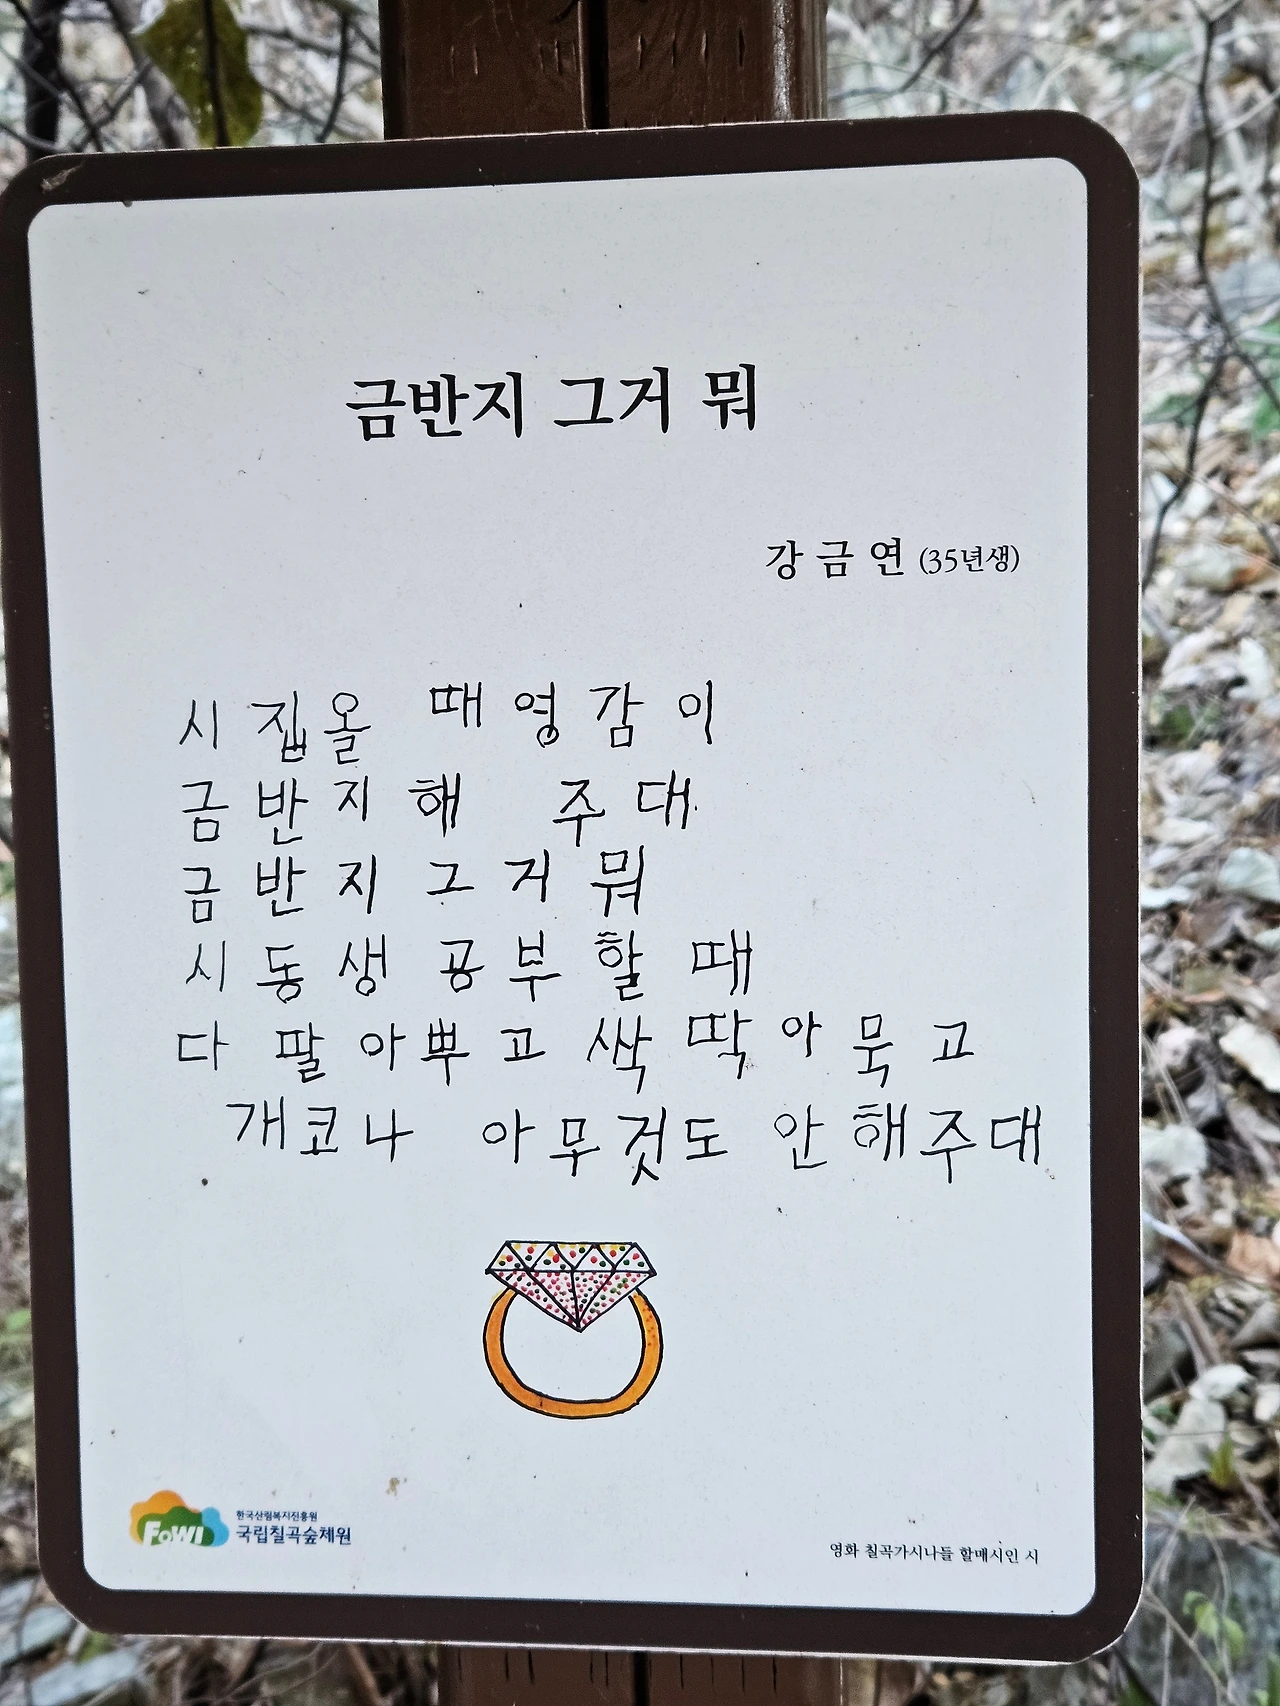 금반지 그거 뭐
강금연 (35년생)
시집올 때 영감이
금반지 해 주대
금반지 그거 뭐
시동생 공부 할 때
다 팔아뿌고 싹 딱아 묵고
개코나 아무것도 안 해주대
FoWI
한국산림복지진흥원
국립칠곡숲체원
영화 칠곡가시나들 할매시인 시